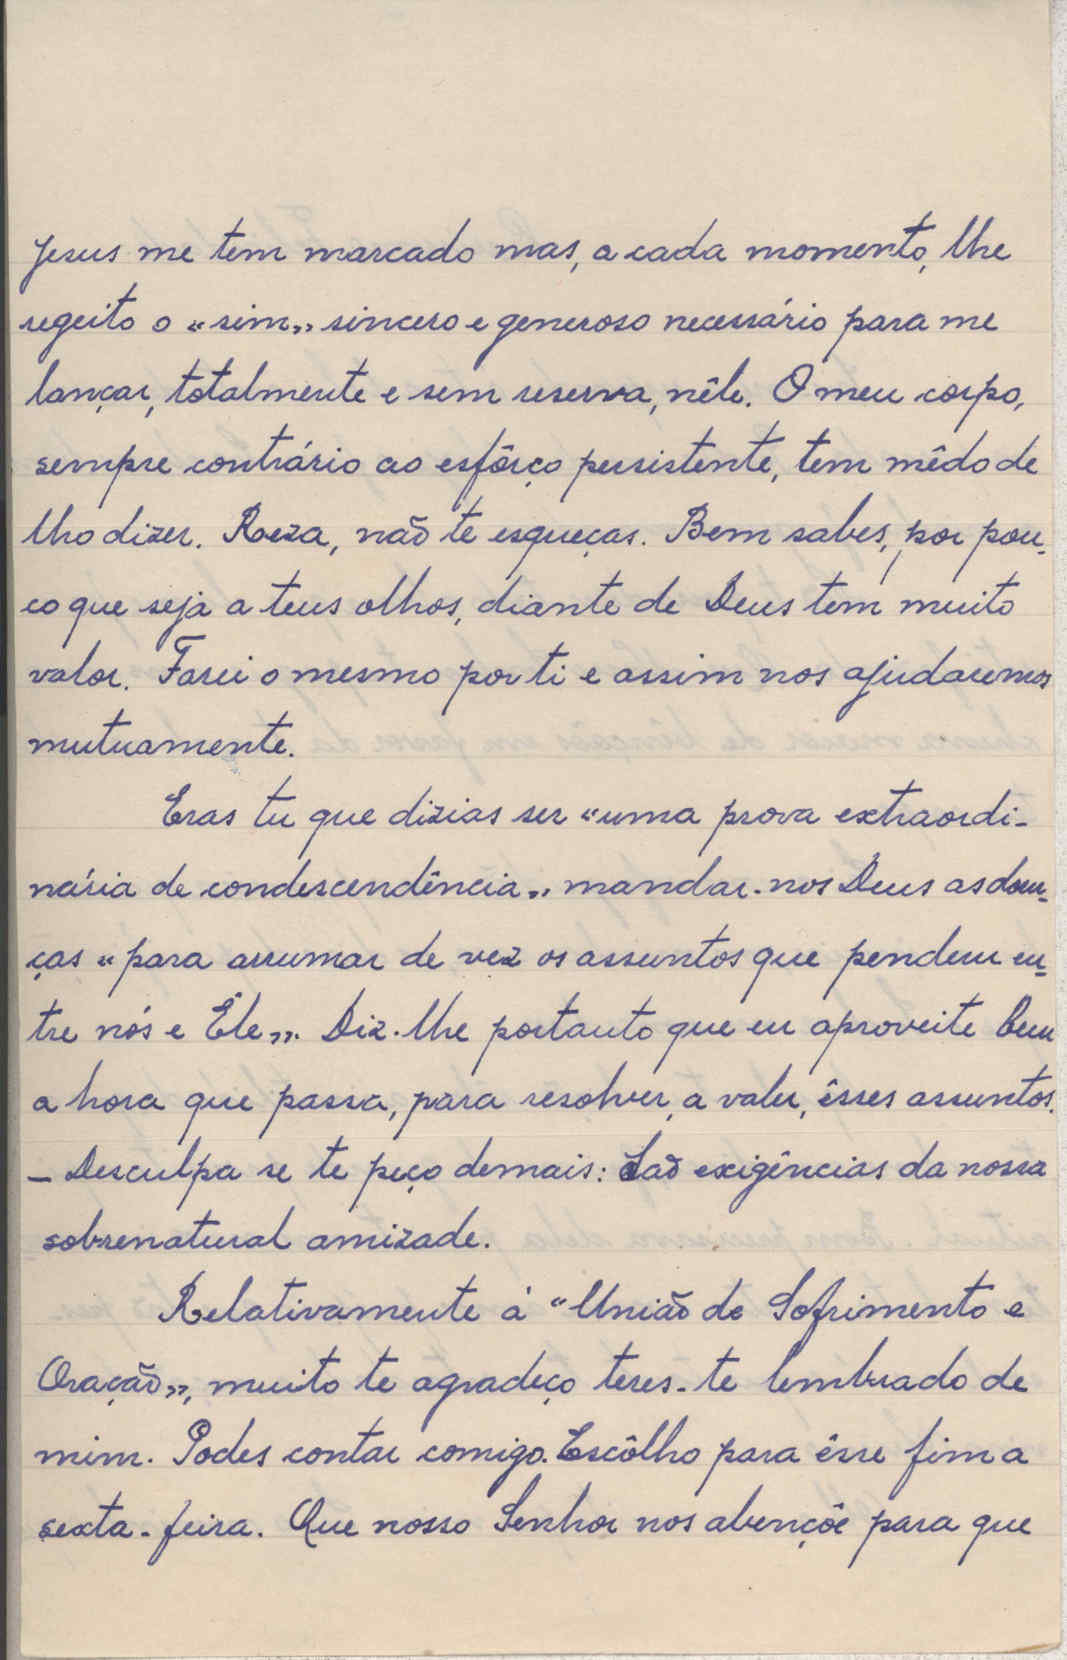 Jesus me tem marcado mas, a cada momento, lhe
regeito o «sim» sincero e generoso necessário para me
lançar, totalmente e sem reserva, nêle. O meu corpo,
sempre contrário ao esfôrço persistente, tem mêdo de
lho dizer. Reza, não te esqueças. Bem sabes, por pou-
co que seja a teus olhos, diante de Deus tem muito
valor. Farei o mesmo por ti e assim nos ajudaremos
mutuamente.
Eras tu que dizias ser «uma prova extraordi-
nária de condescendência» mandar-nos Deus as doen-
ças «para arrumar de vez os assuntos que pendem en-
tre nós e Êle». Diz-lhe portanto que eu aproveite bem
a hora que passa, para resolver, a valer, êsses assuntos.
– Desculpa se te peço demais: São exigências da nossa
sobrenatural amizade.
Relativamente á "União de Sofrimento e
Oração», muito te agradeço teres-te lembrado de
mim. Podes contar comigo. Escôlho para êsse fim a
sexta-feira. Que nosso Senhor nos abençôe para que